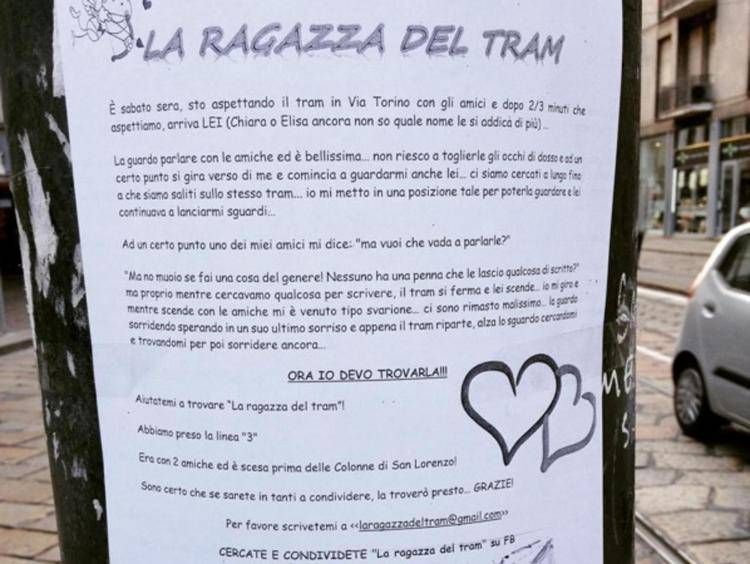 LA RAGAZZA DEL TRAM
È sabato sera, sto aspettando il tram in Via Torino con gli amici e dopo 2/3 minuti che
aspettiamo, arriva LEI (Chiara o Elisa ancora non so quale nome le si addica di più)...
La guardo parlare con le amiche ed è bellissima... non riesco a toglierle gli occhi di dosso e ad un
certo punto si gira verso di me e comincia a guardarmi anche lei... ci siamo cercati a lungo fino
a che siamo saliti sullo stesso tram... io mi metto in una posizione tale per poterla guardare e lei
continuava a lanciarmi sguardi...
Ad un certo punto uno dei miei amici mi dice: "ma vuoi che vada a parlarle?"
"Ma no muoio se fai una cosa del genere! Nessuno ha una penna che le lascio qualcosa di scritto?"
ma proprio mentre cercavamo qualcosa per scrivere, il tram si ferma e lei scende... io mi giro e
mentre scende con le amiche mi è venuto tipo svarione... ci sono rimasto malissimo... la guardo
sorridendo sperando in un suo ultimo sorriso e appena il tram riparte, alza lo sguardo cercandomi
e trovandomi per poi sorridere ancora...
ORA IO DEVO TROVARLA!!!
Aiutatemi a trovare "La ragazza del tram"!
Abbiamo preso la linea "3"
Era con 2 amiche ed è scesa prima delle Colonne di San Lorenzo!
Sono certo che se sarete in tanti a condividere, la troverò presto... GRAZIE!
Per favore scrivetemi a <<laragazzadeltram@gmail.com>>
CERCATE E CONDIVIDETE "La ragazza del tram" su FB